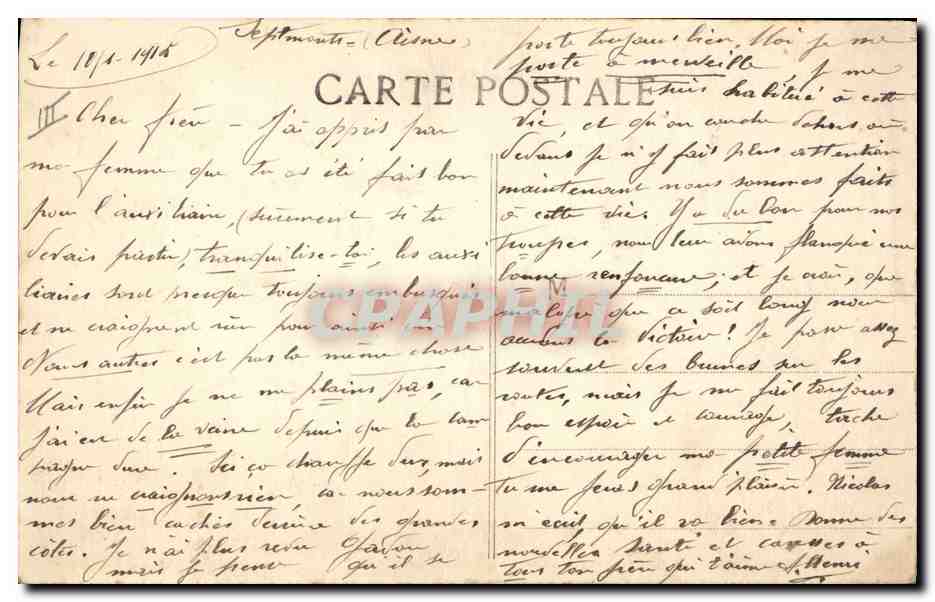 Le 18/1-1915
Septmonts-(Aisne)
CARTE POSTALE
III
Cher frère - j'ai appris par
ma femme que tu as été fait bon
pour l'auxiliaire, (surement si tu
devais partir), tranquilise-toi, les auxi
liaires sont presque toujours embusqués
et ne craignent rien pour ainsi dire
Nous autres c'est pas la même chose
Mais enfin je ne me plains pas, car
j'ai eu de la veine depuis que la cam
pagne dure. Ici ça chauffe dur, mais
nous ne craignons rien, car nous som-
mes bien cachés derrière des grandes
côtes. Je n'ai plus revu
mais je pense qu'il se
porte toujours bien. Moi je me
porte à merveille, je me
suis habitué à cette
vie, et qu'on couche dehors ou
dedans je n'y fait plus attention
maintenant nous sommes faits
à cette vie. Y a du bon pour nos
troupes, nous leur avons flanqué une
bonne ; et je crois, que
malgré que ce soit long nous
aurons la victoire! Je passe assez
souvent des brunes sur les
routes, mais je me fait toujours
bon espoir et courage, tache
d'encourager ma petite femme
tu me feras grand plaisir. Nicolas
m'écrit, qu'il va bien. Donne des
nouvelles santé et caresses à
tous ton frère qui t'aime Henri
CPAPHIL